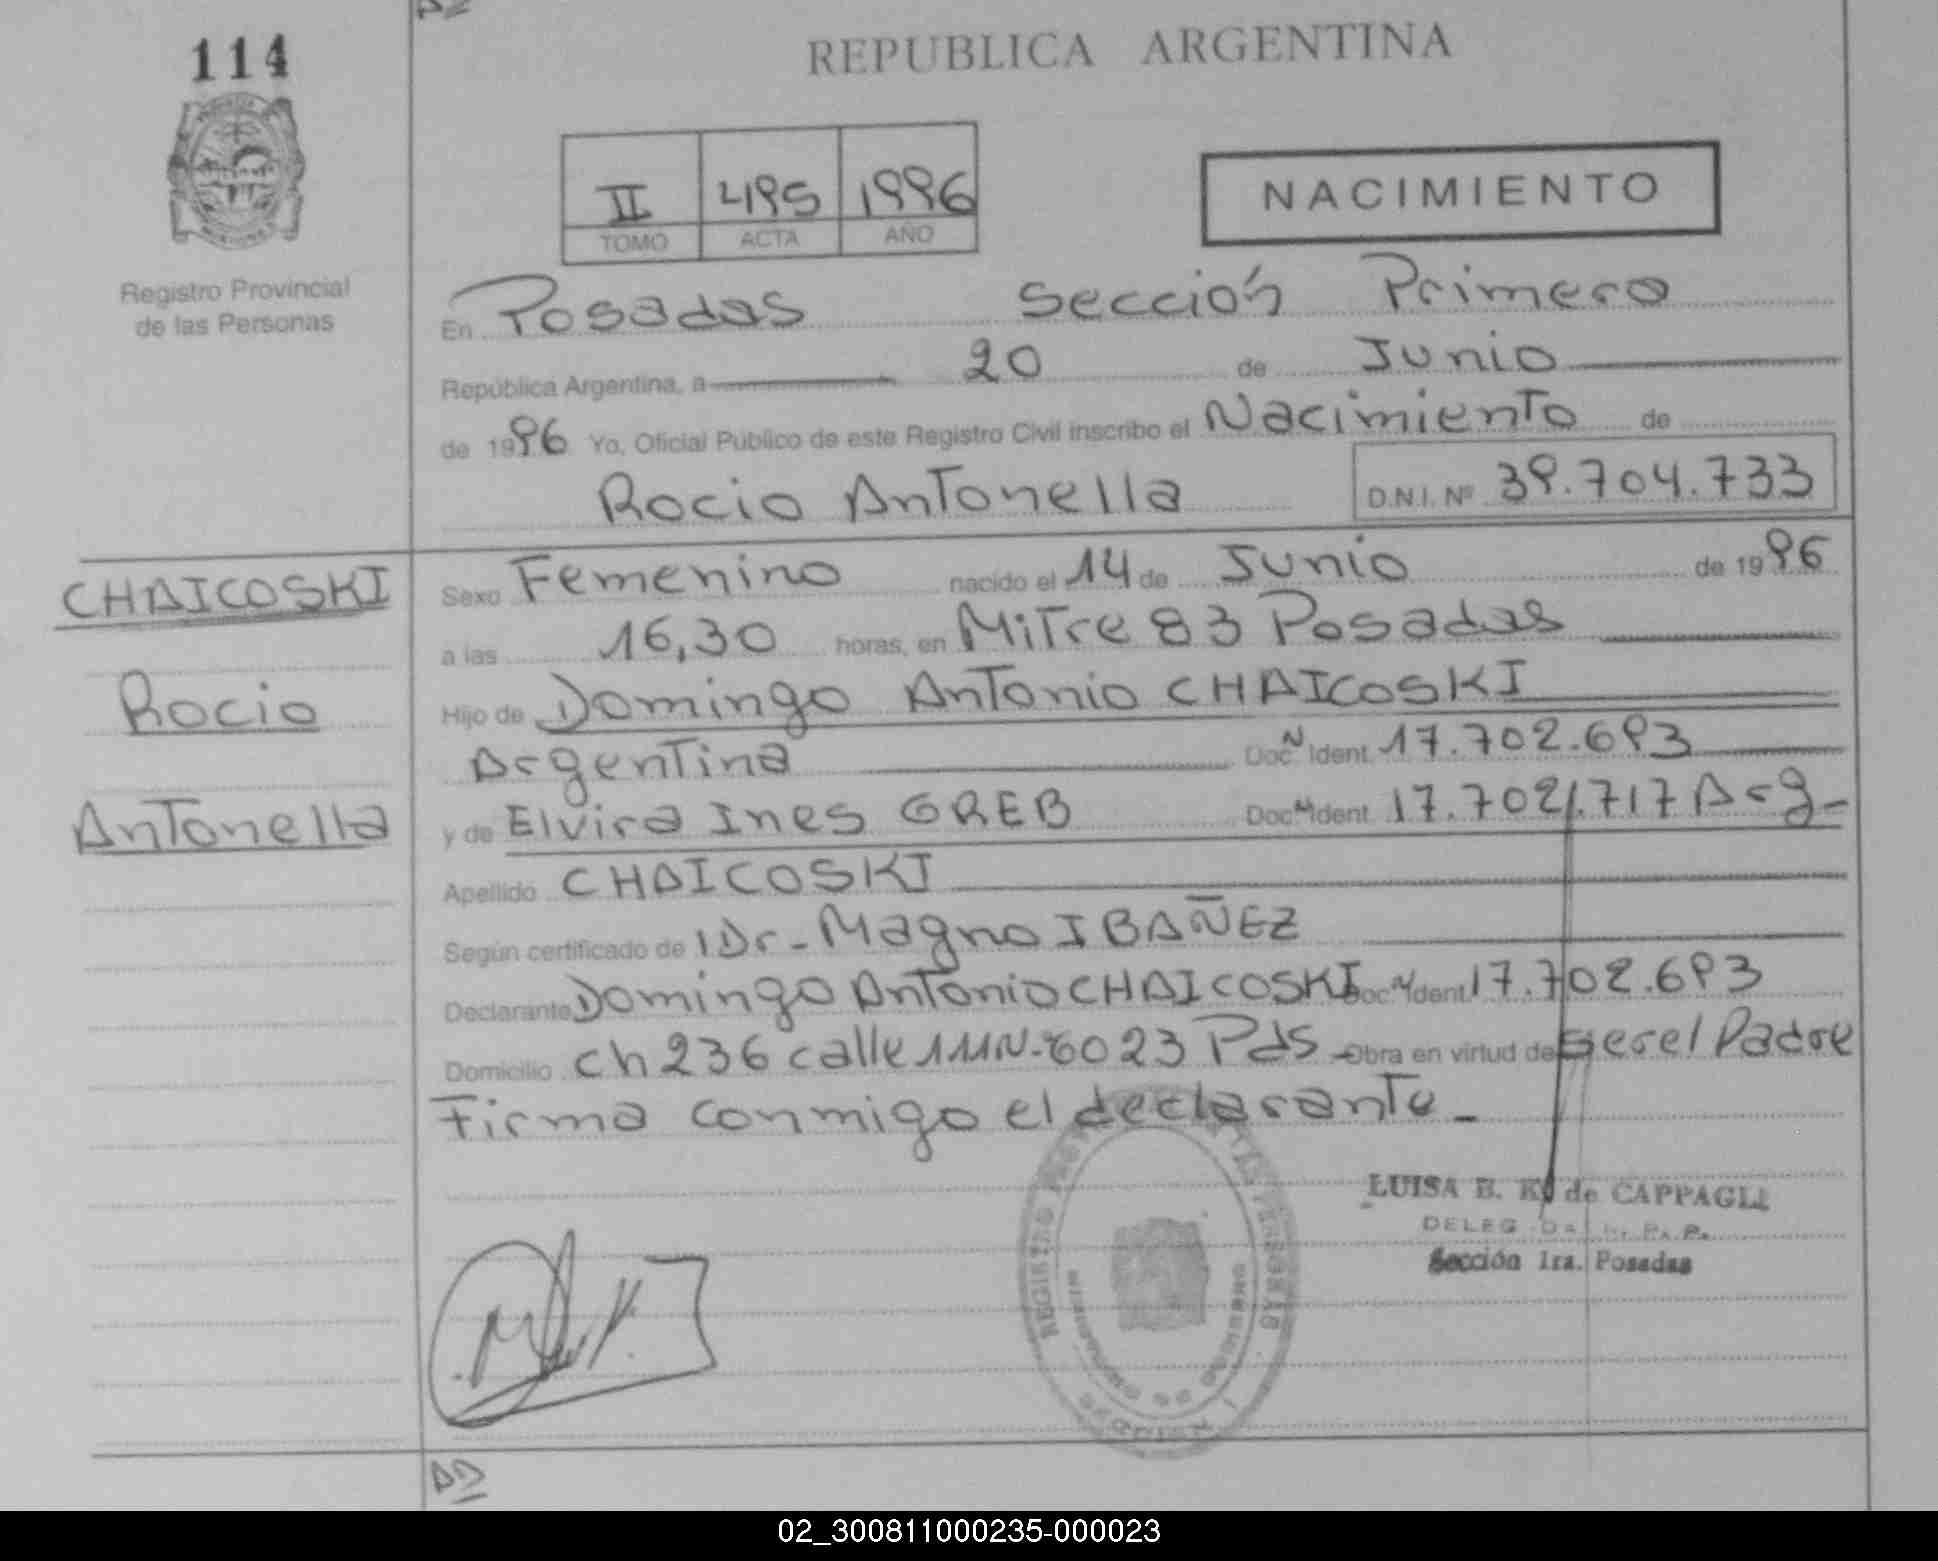 114
REPUBLICA ARGENTINA
II 495 1996
TOMO ACTA AÑO
NACIMIENTO
Registro Provincial
de las Personas
En Posadas Sección Primera
República Argentina, a 20 de Junio
de 1996 Yo, Oficial Público de este Registro Civil inscribo el Nacimiento de
Rocio Antonella D.N.I. Nº 39.704.733
CHAICOSKI
Rocio
Antonella
Sexo Femenino nacido el 14 de Junio de 1996
a las 16,30 horas, en Mitre 83 Posadas
Hijo de Domingo Antonio CHAICOSKI
Argentina Doc N Ident. 17.702.693
y de Elvira Ines GREB Doc N Ident. 17.702.717 Arg-
Apellido CHAICOSKI
Según certificado de Dr- Magno IBAÑEZ
Declarante Domingo Antonio CHAICOSKI Doc N Ident. 17.702.693
Domicilio ch 236 calle 111 N-6023 Pds - Obra en virtud de ser el Padre
Firma conmigo el declarante-
LUISA B. K. de CAPPAGLI
DELEG. DA R. P. P.
Sección 1ra. Posadas
02_300811000235-000023